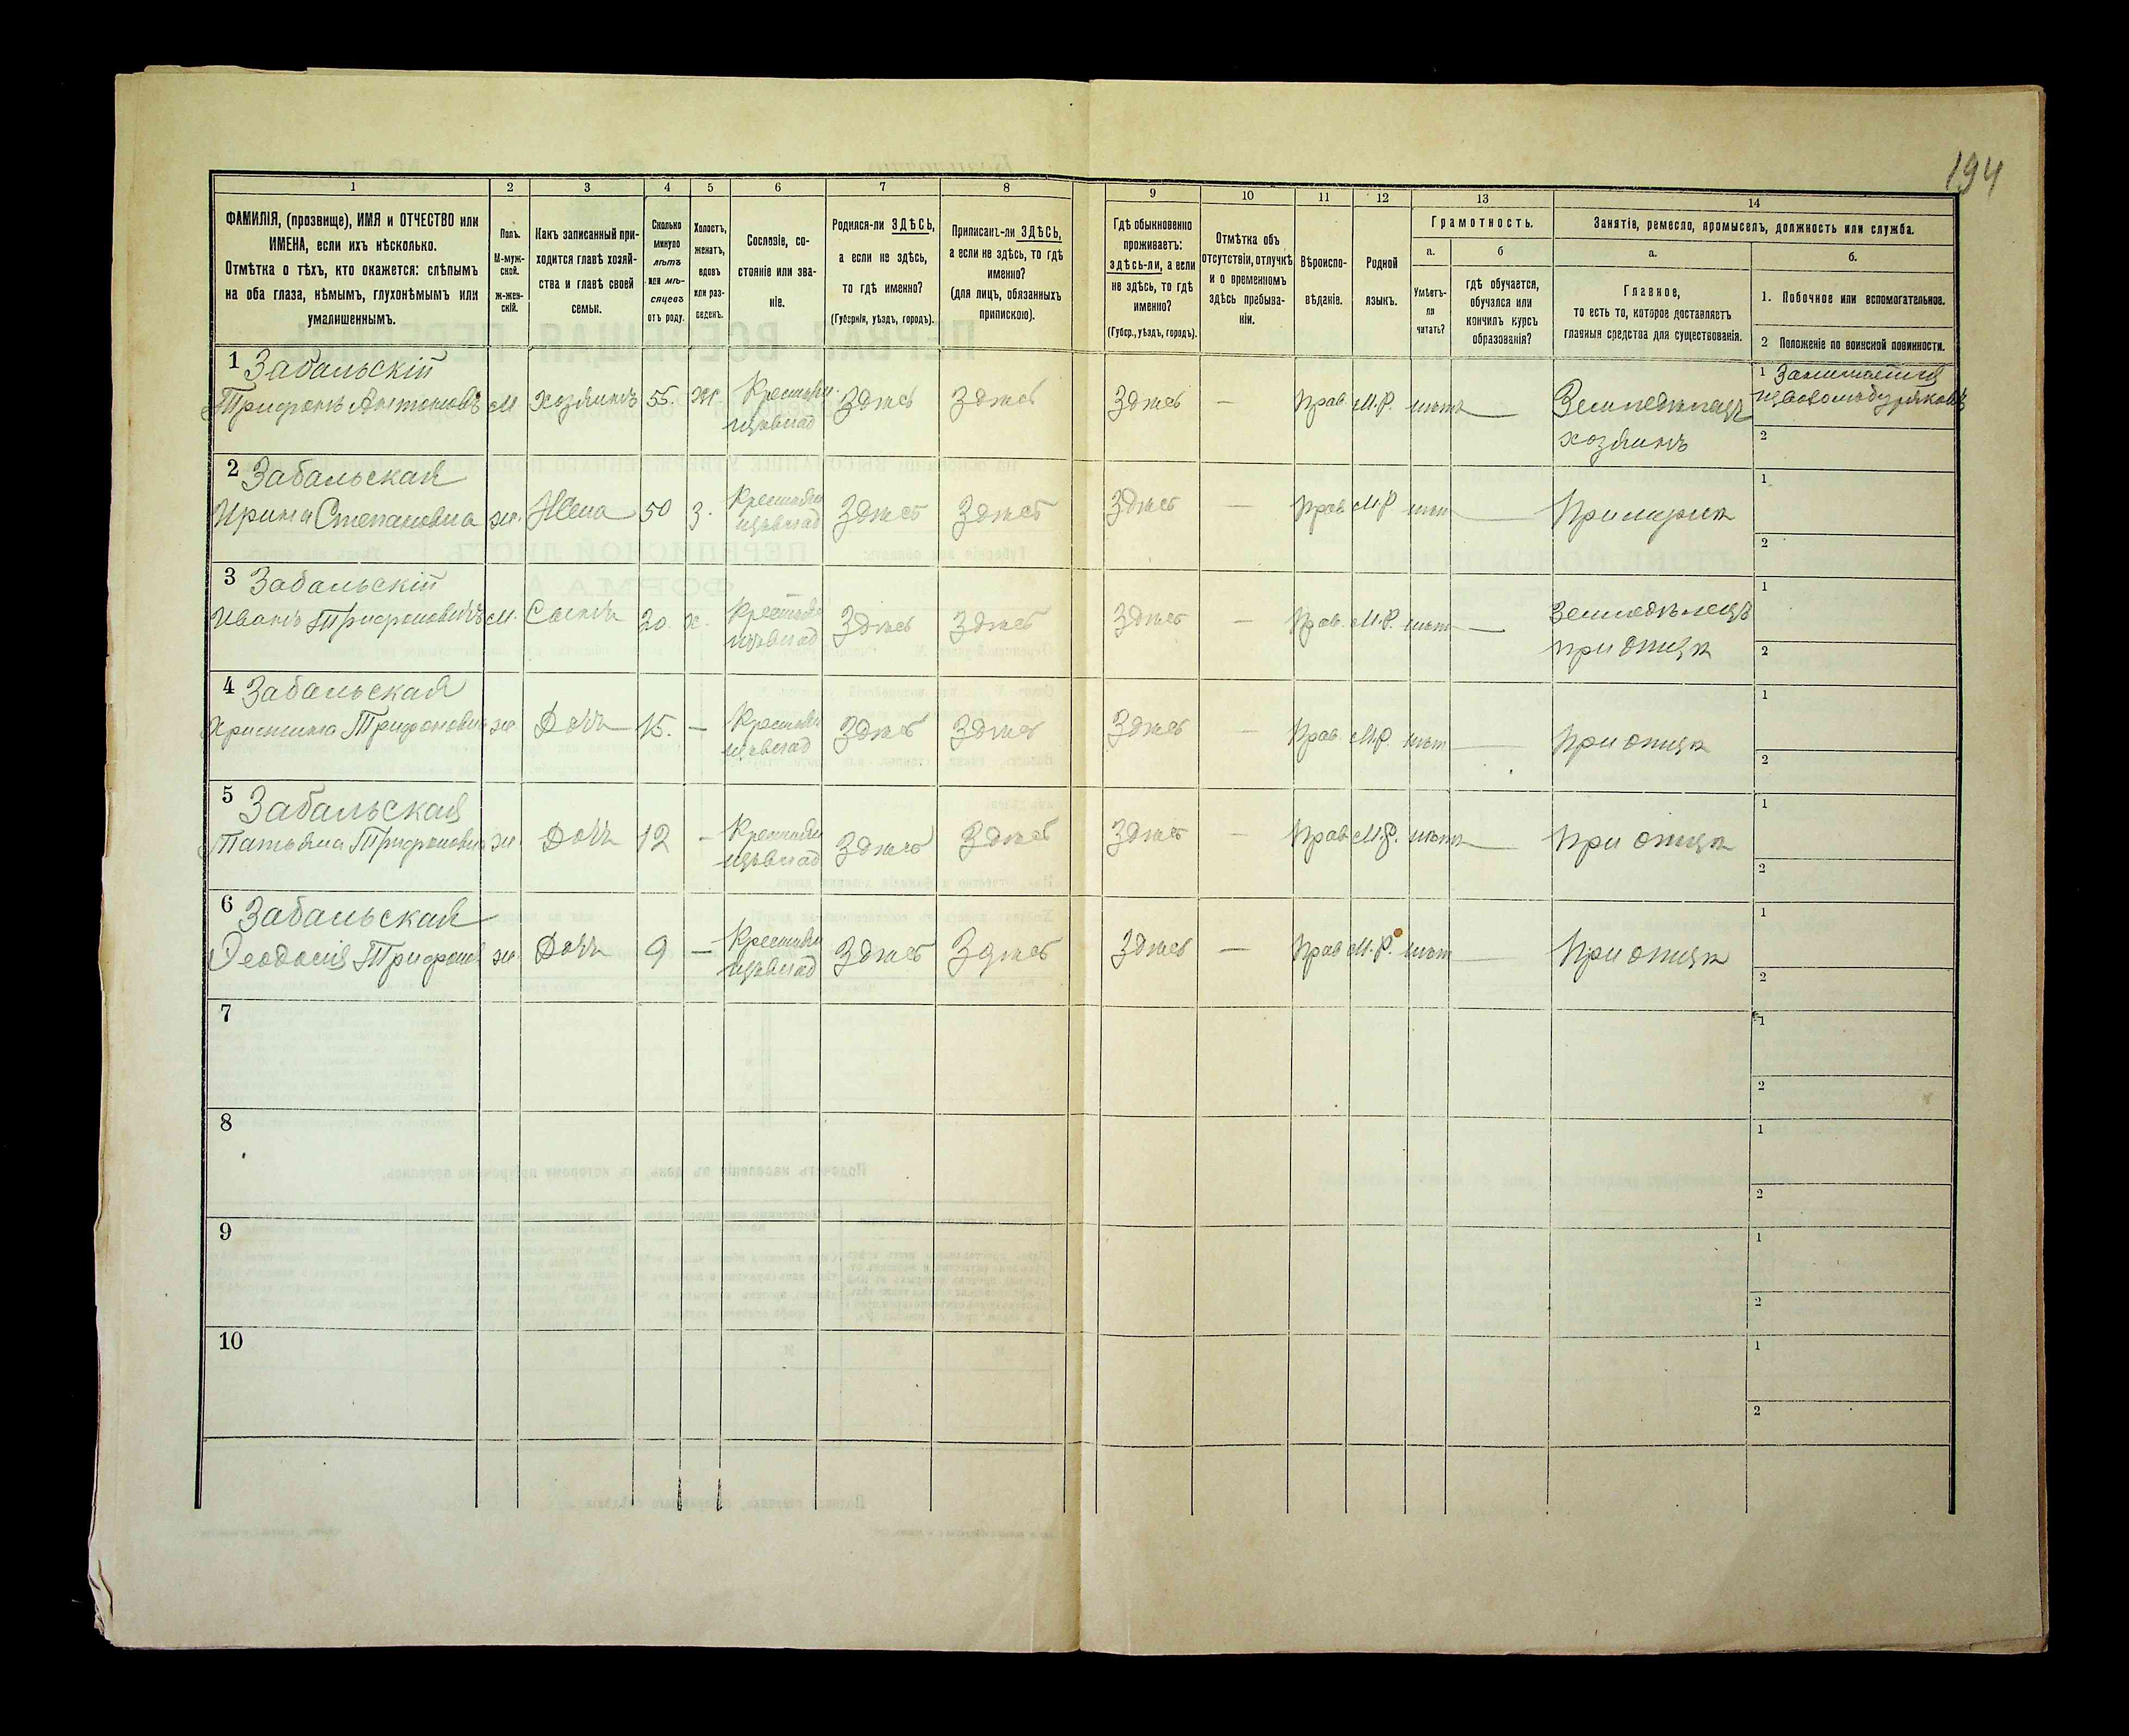 194
1 2 3 4 5 6 7 8 9 10 11 12 13 14
ФАМИЛІЯ, (прозвище), ИМЯ и ОТЧЕСТВО или
ИМЕНА, если ихъ нѣсколько.
Отмѣтка о тѣхъ, кто окажется: слѣпымъ
на оба глаза, нѣмымъ, глухонѣмымъ или
умалишеннымъ.
Полъ.
М-муж-
ской.
Ж-жен-
скій.
Какъ записанный при-
ходится главѣ хозяй-
ства и главѣ своей
семьи.
Сколько
минуло
лѣтъ
или мѣ-
сяцевъ
отъ роду.
Холостъ,
женатъ,
вдовъ
или раз-
веденъ.
Сословіе, со-
стояніе или зва-
ніе.
Родился-ли ЗДѢСЬ,
а если не здѣсь,
то гдѣ именно?
(Губернія, уѣздъ, городъ).
Приписанъ-ли ЗДѢСЬ,
а если не здѣсь, то гдѣ
именно?
(для лицъ, обязанныхъ
припискою).
Гдѣ обыкновенно
проживаетъ:
здѣсь-ли, а если
не здѣсь, то гдѣ
именно?
(Губер., уѣздъ, городъ).
Отмѣтка объ
отсутствіи, отлучкѣ
и о временномъ
здѣсь пребыва-
ніи.
Вѣроиспо-
вѣданіе.
Родной
языкъ.
Грамотность.
а.
Умѣетъ-
ли
читать?
б
гдѣ обучается,
обучался или
кончилъ курсъ
образованія?
Занятіе, ремесло, промыселъ, должность или служба.
а.
Главное,
то есть то, которое доставляетъ
главныя средства для существованія.
б.
1. Побочное или вспомогательное.
2 Положеніе по воинской повинности.
1 Забальскій
Трифонъ Антоновъ м Хозяинъ 55. ж. Здѣсь Здѣсь Здѣсь — Прав. М.Р. нѣтъ — Земледѣлецъ
хозяинъ
1 Занимается
2
2 Забальская
Ирина Степановна ж. Жена 50 з. Здѣсь Здѣсь Здѣсь — Прав. М.Р. нѣт — При мужѣ
1
2
3 Забальскій
Иванъ Трифоновичъ м. Сынъ 20 х. Здѣсь Здѣсь Здѣсь — Прав. М.Р. нѣт — Земледѣлецъ
при отцѣ
1
2
4 Забальская
Христина Трифоновна ж Дочь 15. — Здѣсь Здѣсь Здѣсь — Прав. М.Р. нѣт — При отцѣ
1
2
5 Забальская
Татьяна Трифоновна ж. Дочь 12 — Здѣсь Здѣсь Здѣсь — Прав М.Р. нѣтъ — При отцѣ
1
2
6 Забальская
Феодосія Трифонов ж. Дочь 9 — Здѣсь Здѣсь Здѣсь — Прав М.Р. нѣт — При отцѣ
1
2
7
1
2
8
1
2
9
1
2
10
1
2